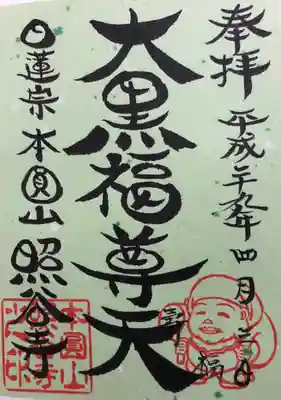 奉拝
平成二十九年四月二日
大黒福尊天
日蓮宗本圓山照谷寺
本圓山
福